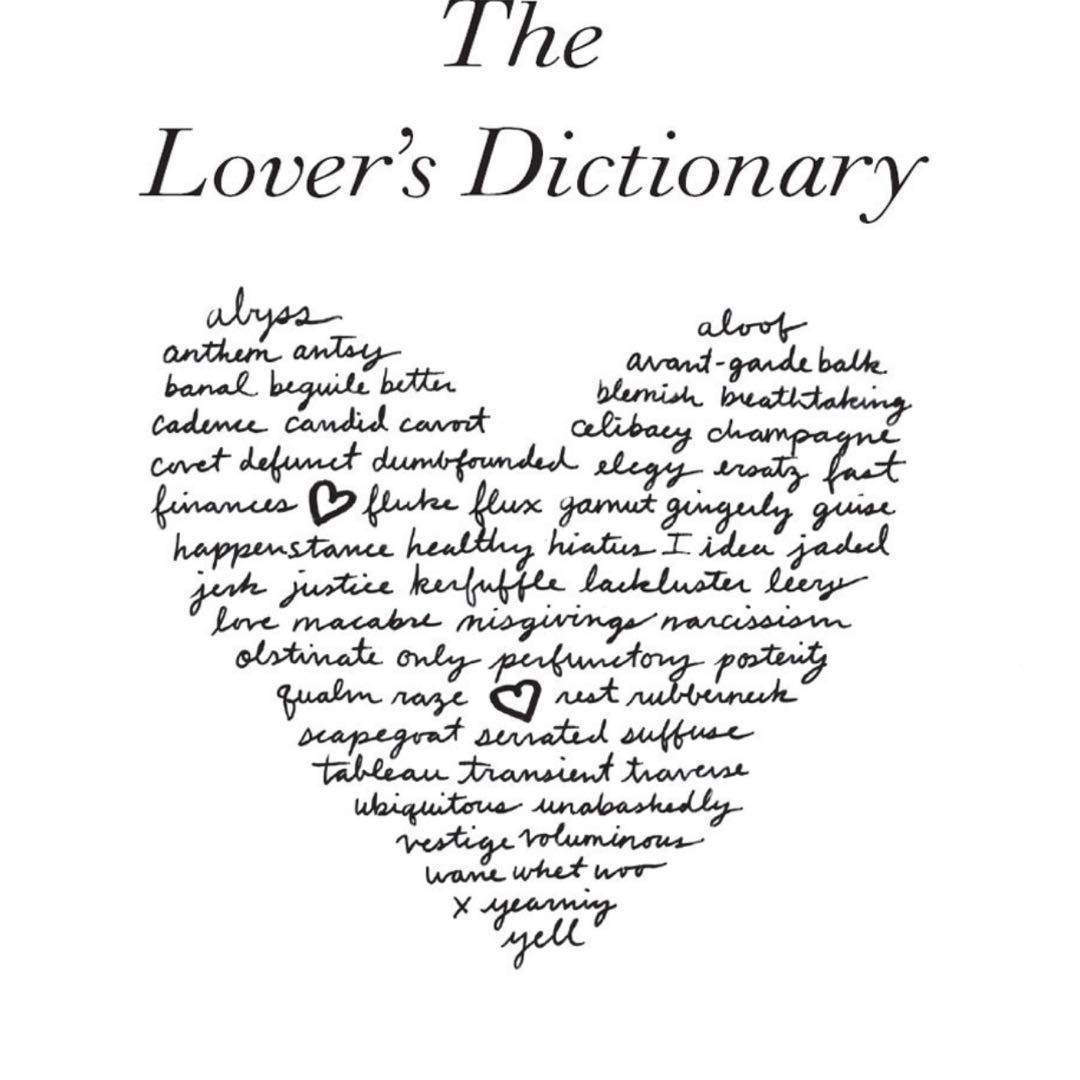 The
Lover's Dictionary
abyss aloof
anthem antsy avant-garde balk
banal beguile better blemish breathtaking
cadence candid cavort celibacy champagne
covet defunct dumbfounded elegy ersatz fast
finances fluke flux gamut gingerly guise
happenstance healthy hiatus I idea jaded
jerk justice kerfuffle lackluster leery
love macabre misgivings narcissism
obstinate only perfunctory posterity
qualm raze rest rubberneck
scapegoat serrated suffuse
tableau transient traverse
ubiquitous unabashedly
vestige voluminous
wane whet woo
x yearning
yell